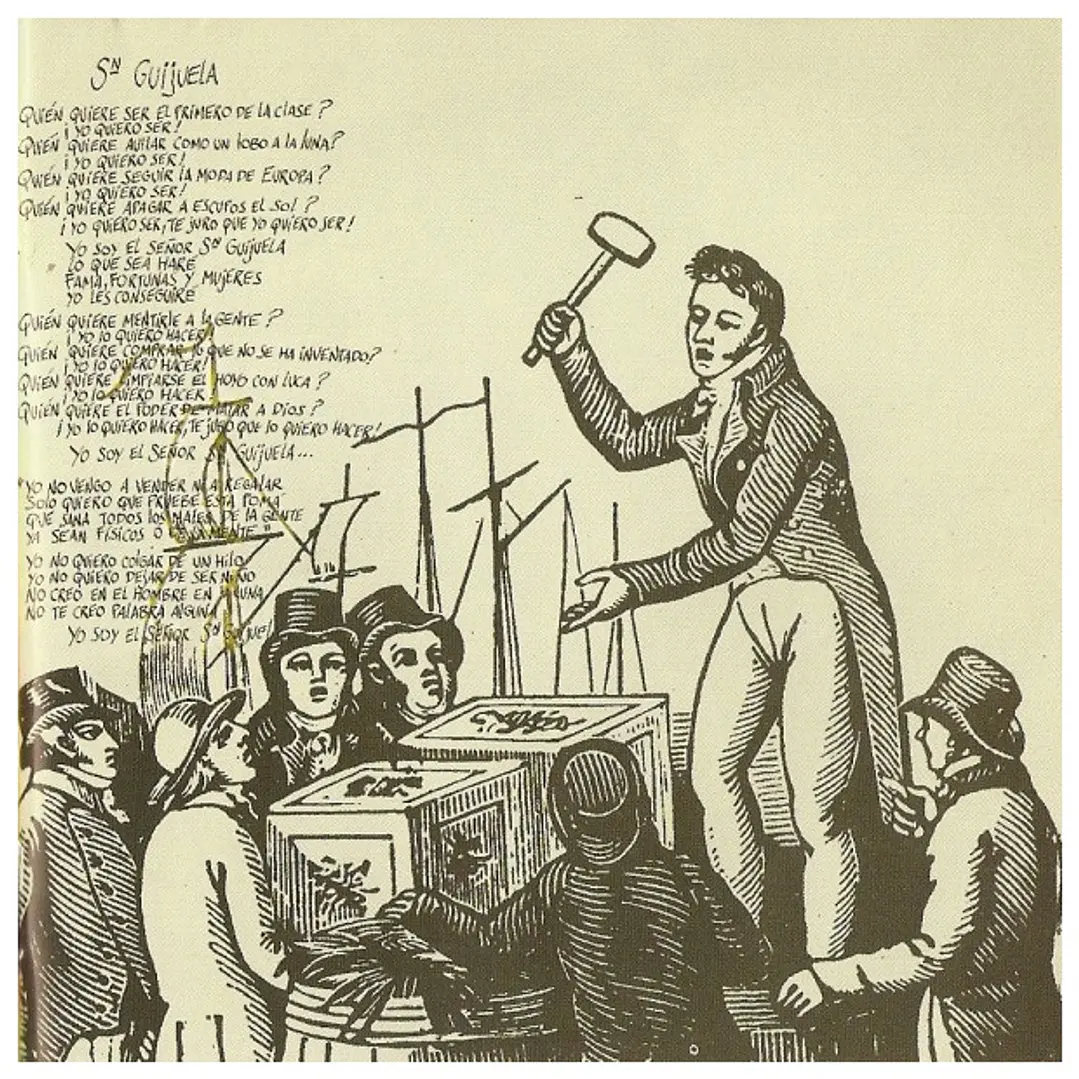 Sn Guijuela
Quién quiere ser el primero de la clase?
¡Yo quiero ser!
Quién quiere aullar como un lobo a la luna?
¡Yo quiero ser!
Quién quiere seguir la moda de Europa?
¡Yo quiero ser!
Quién quiere apagar a escupos el sol?
¡Yo quiero ser, te juro que yo quiero ser!
Yo soy el señor Sn Guijuela
lo que sea haré
fama, fortunas y mujeres
yo les conseguiré
Quién quiere mentirle a la gente?
¡Yo lo quiero hacer!
Quién quiere comprar lo que no se ha inventado?
¡Yo lo quiero hacer!
Quién quiere limpiarse el hoyo con luca?
¡Yo lo quiero hacer!
Quién quiere el poder de matar a Dios?
¡Yo lo quiero hacer, te juro que lo quiero hacer!
Yo soy el señor Sn Guijuela...
"Yo no vengo a vender ni a regalar
solo quiero que pruebe esta poma
que sana todos los males de la gente
ya sean físicos o de la mente"
Yo no quiero colgar de un hilo
yo no quiero dejar de ser niño
no creo en el hombre en la luna
no te creo palabra alguna
Yo soy el señor Sn Guijuel